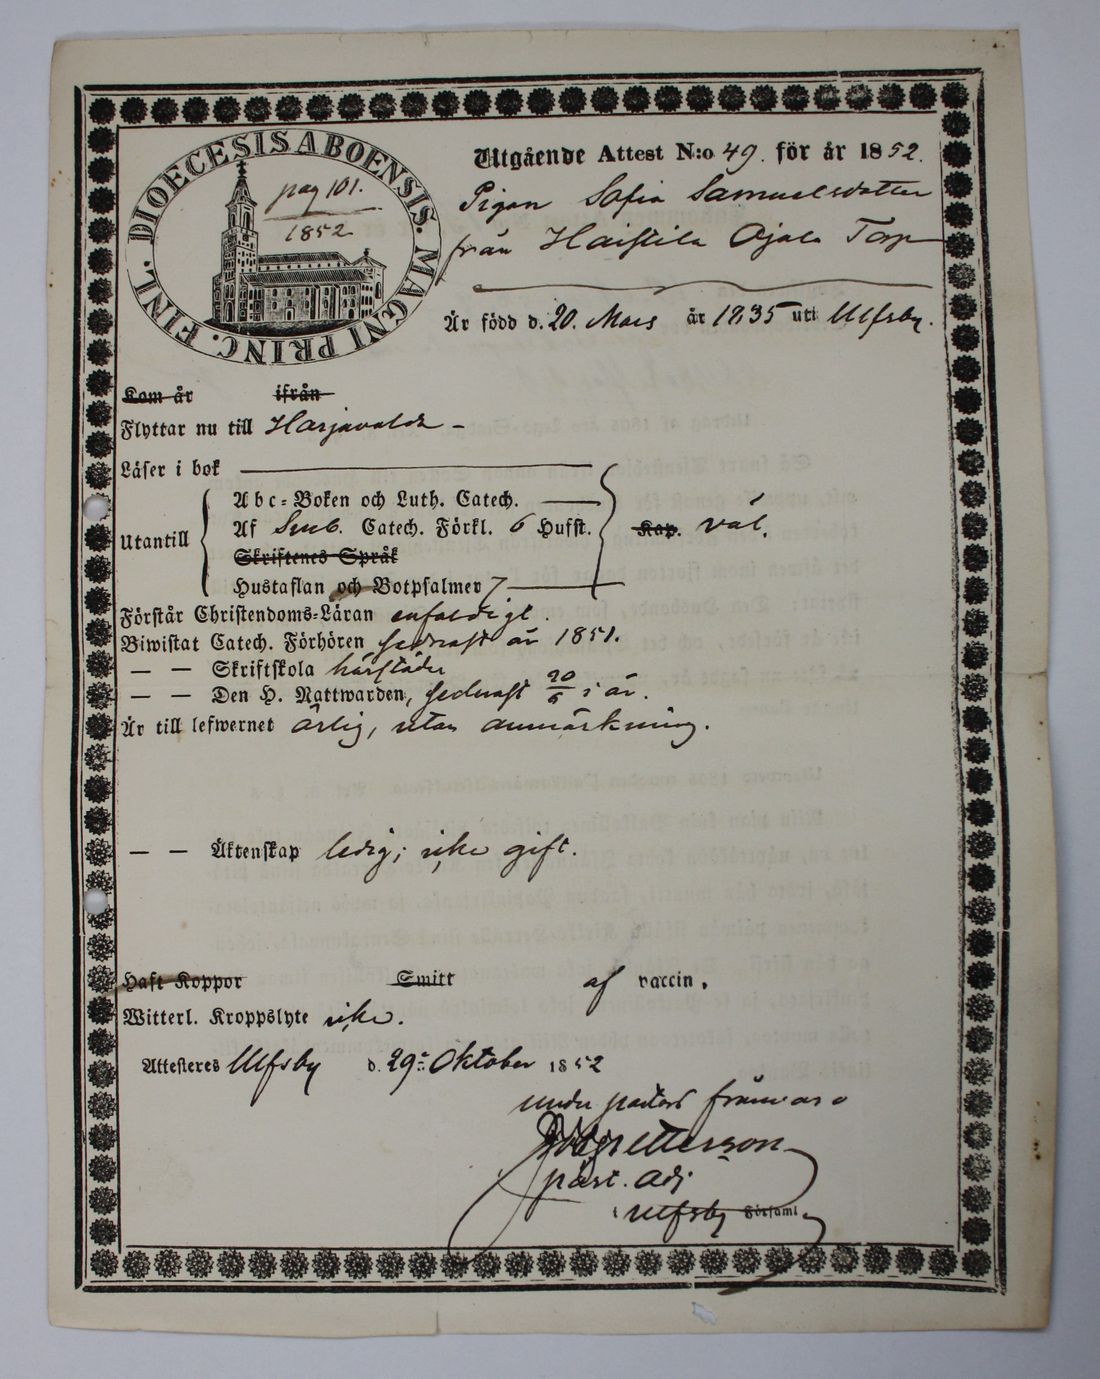 DIOECESIS ABOENSIS. MAGNI PRINC. FINL.
pag 101.
1852
Utgående Attest N:o 49. för år 1852.
Pigan Sofia Samuelsdotter
från Haistila Ojala Torp
Är född d. 20. Mars år 1835 uti Ulfsby.
Kom år ifrån
Flyttar nu till Harjavalda
Läser i bok
Abc-Boken och Luth. Catech.
Utantill
Af Sveb. Catech. Förkl. 6 Hufst. Kap. väl.
Skriftenes Språk
Hustaflan och Botpsalmer 7
Förstår Christendoms-Läran enfaldigt.
Biwistat Catech. Förhören sednast år 1851.
— — Skriftskola härstädes
— — Den H. Nattwarden, sednast 20/6 i år.
Är till lefwernet ärlig, utan anmärkning.
— — Äktenskap ledig; icke gift.
Haft Koppor Smitt af vaccin.
Witterl. Kroppslyte icke.
Attesteres Ulfsby d. 29:e Oktober 1852
under pastors frånvaro
Petterson
past. adj
i Ulfsby Församl.